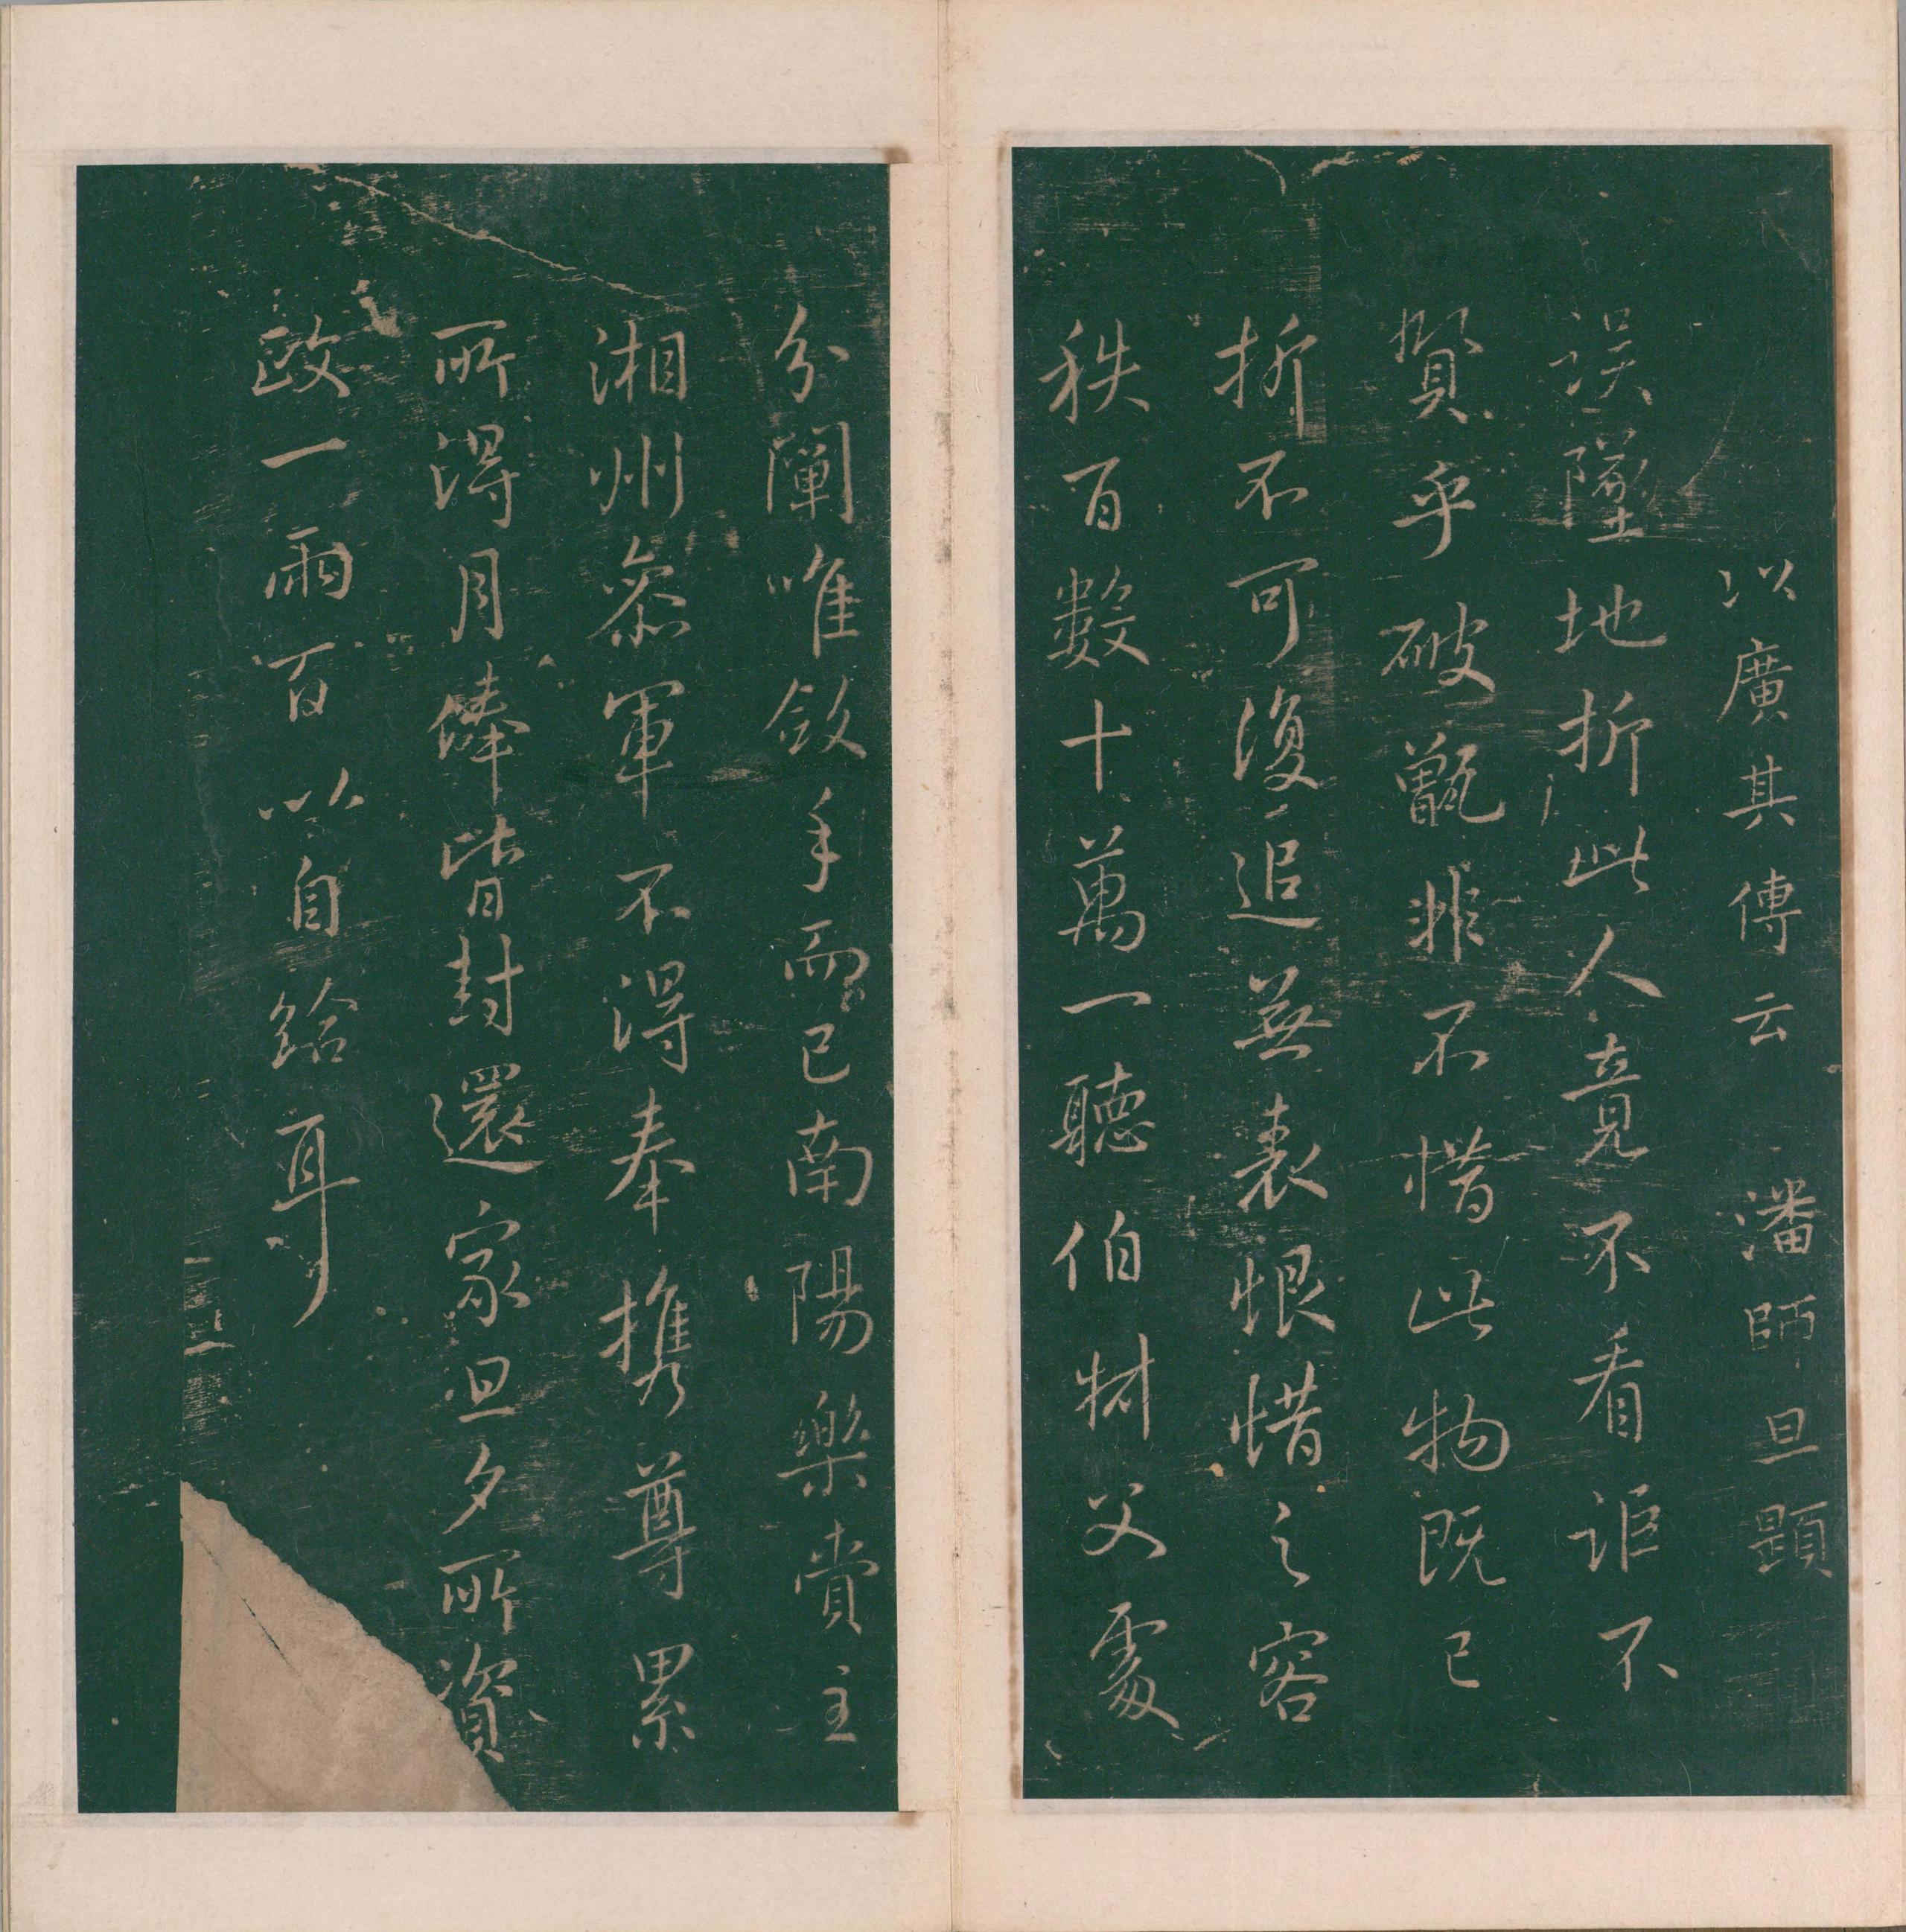 以廣其傳云 潘師旦題
誤墜地折此人竟不看詎不
賢乎破甑非不惜此物既已
折不可復追無表恨惜之容
秩百數十萬一聽伯材父處
分闡唯斂手而已南陽樂賞主
湘州叅軍不得奉攜尊累
所得月俸皆封還家旦夕所資
政一兩百以自給耳